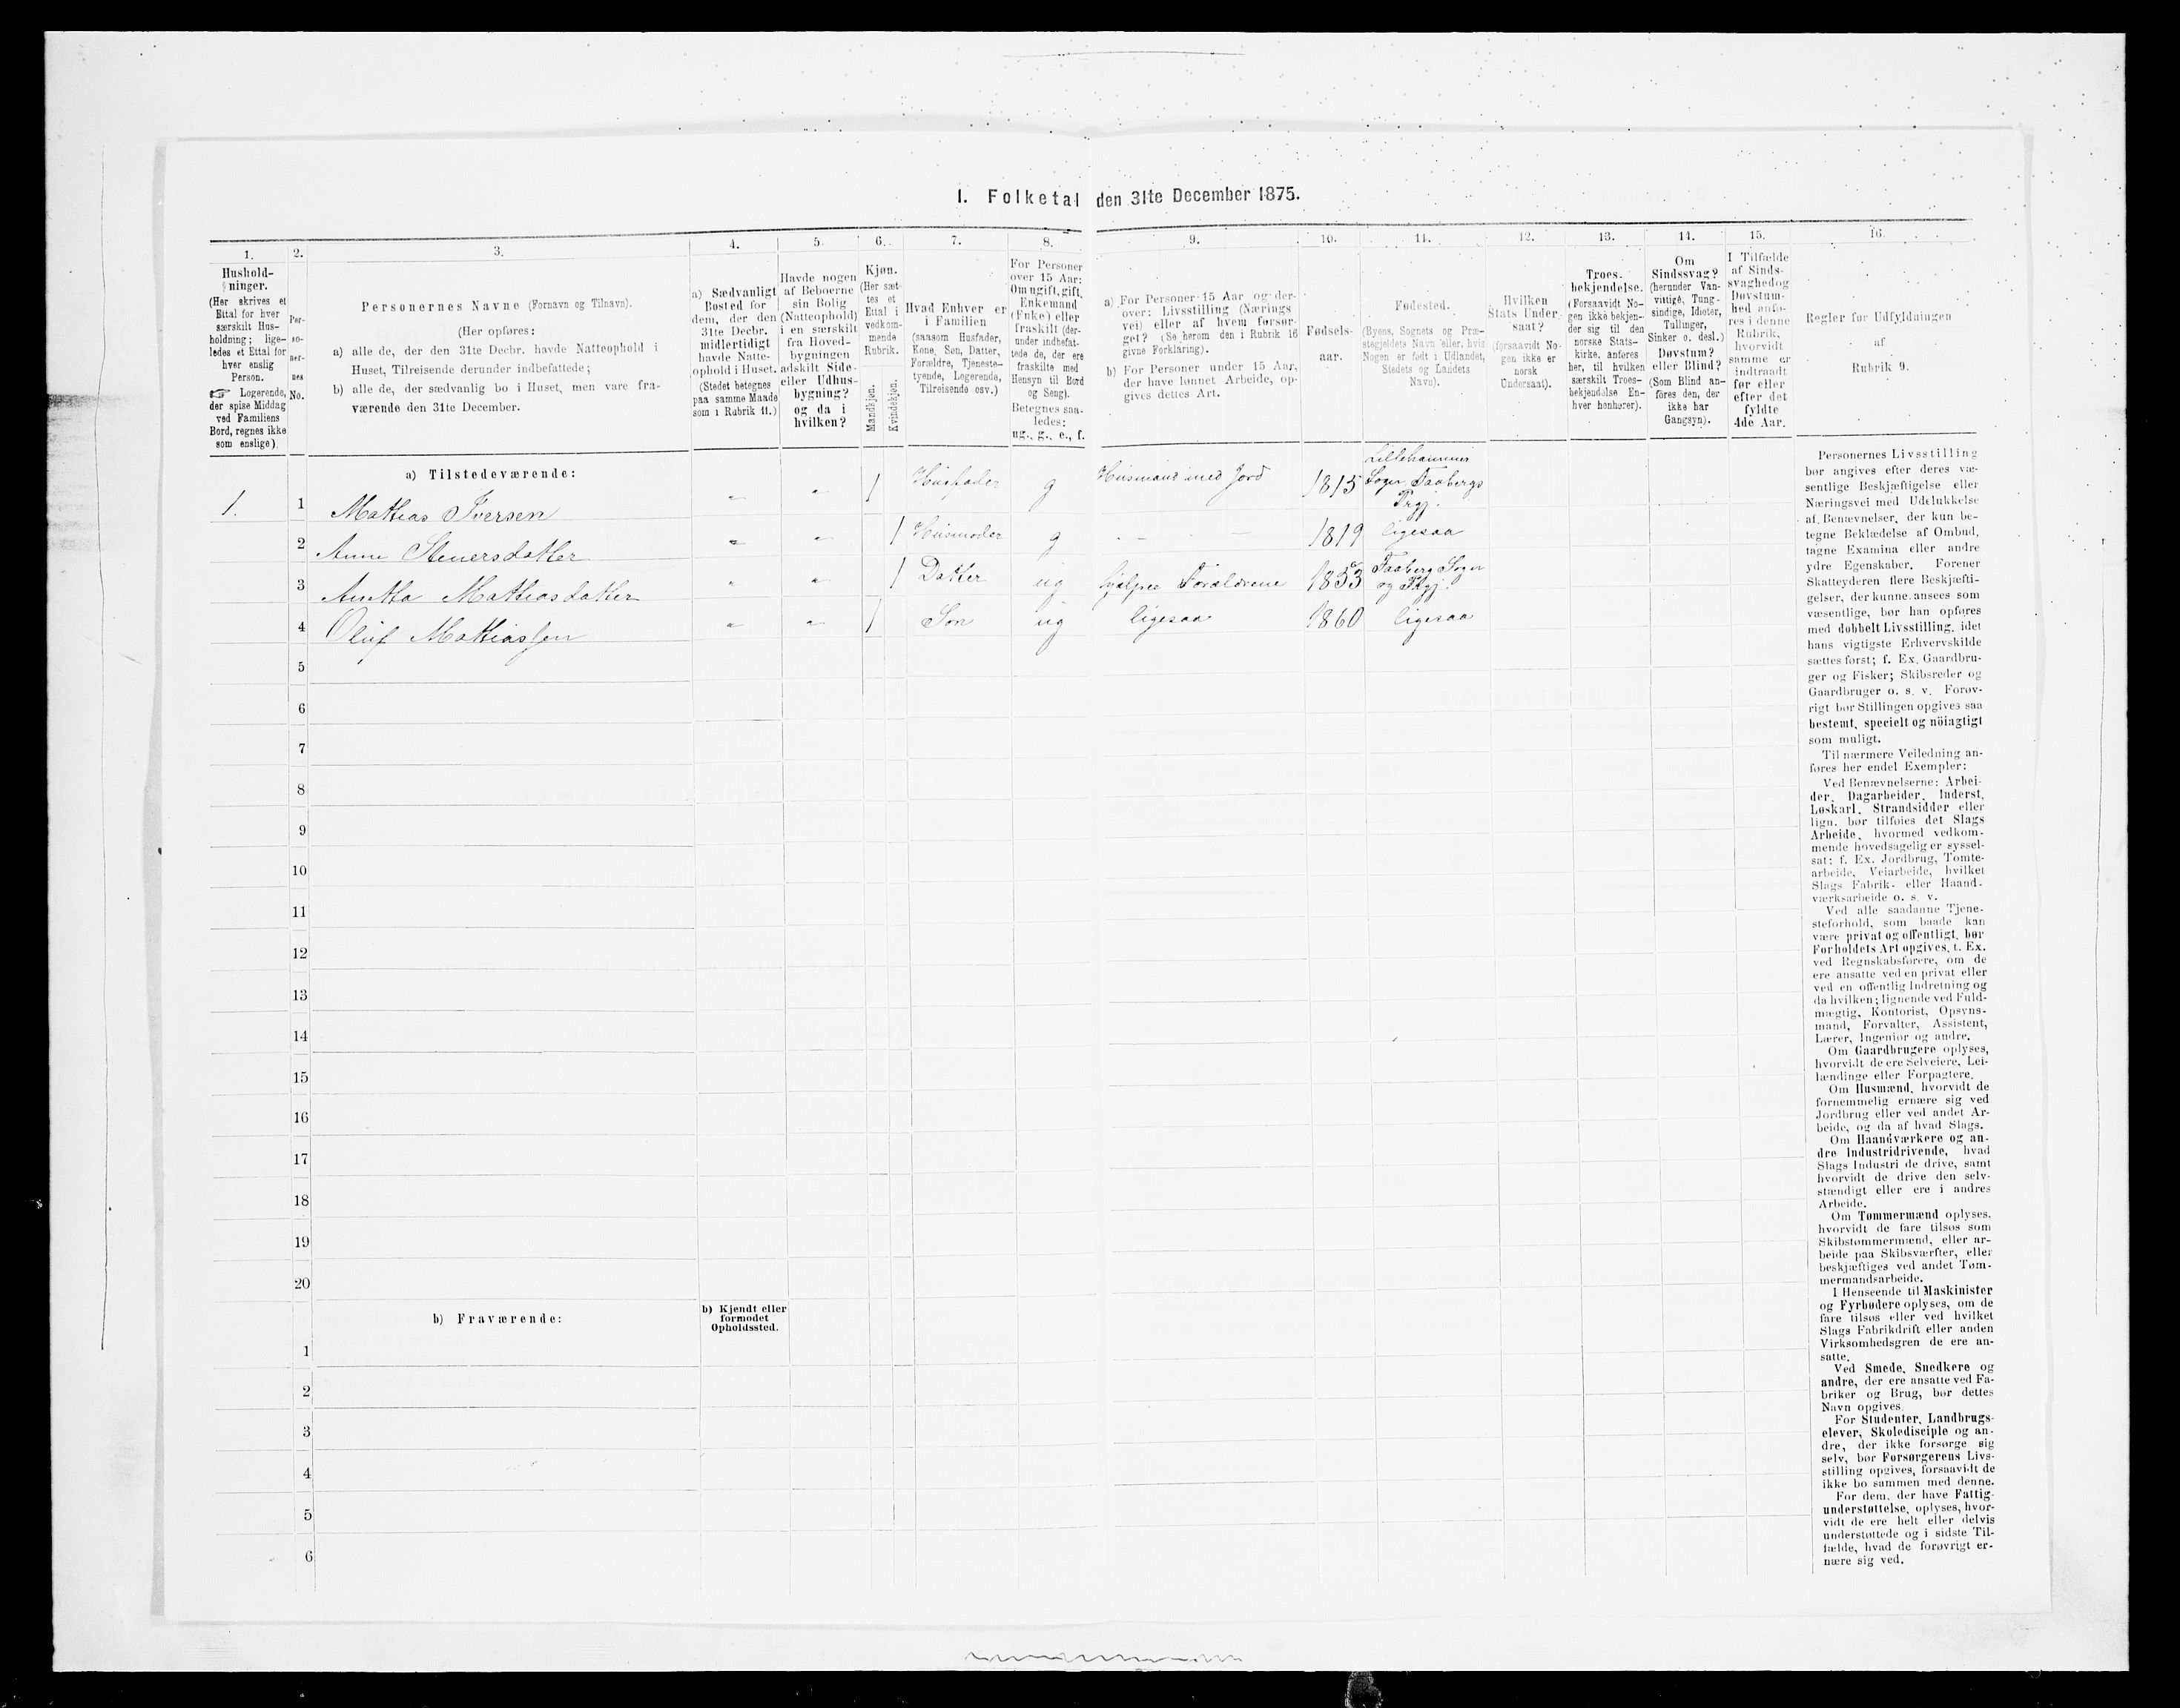 I. Folketal den 31te December 1875.
1.
Hushold-
ninger.
(Her skrives et
Ettal for hver
særskilt Hus-
holdning; lige-
ledes et Ettal for
hver enslig
Person.
☞ Logerende,
der spise Middag
ved Familiens
Bord, regnes ikke
som enslige).
2.
Per-
so-
ner-
nes
No.
3.
Personernes Navne (Fornavn og Tilnavn).
(Her opføres:
a) alle de, der den 31te Decbr. havde Natteophold i
Huset, Tilreisende derunder indbefattede;
b) alle de, der sædvanlig bo i Huset, men vare fra-
værende den 31te December.
4.
a) Sædvanligt
Bosted for
dem, der den
31te Decbr.
midlertidigt
havde Natte-
ophold i Huset.
(Stedet betegnes
paa samme Maade
som i Rubrik 11.)
5.
Havde nogen
af Beboerne
sin Bolig
(Natteophold)
i en særskilt
fra Hoved-
bygningen
adskilt Side-
eller Udhus-
bygning?
og da i
hvilken?
6.
Kjøn.
(Her sæt-
tes et
Ettal i
vedkom-
mende
Rubrik.
Mandkjøn.
Kvindekjøn.
7.
Hvad Enhver er
i Familien
(saasom Husfader,
Kone, Søn, Datter,
Forældre, Tjeneste-
tyende, Logerende,
Tilreisende osv.)
8.
For Personer
over 15 Aar:
Om ugift, gift,
Enkemand
(Enke) eller
fraskilt (der-
under indbefat-
tede de, der ere
fraskilte med
Hensyn til Bord
og Seng).
Betegnes saa-
ledes:
ug., g., e., f.
9.
a) For Personer 15 Aar og der-
over: Livsstilling (Nærings
vei) eller af hvem forsør-
get? (Se herom den i Rubrik 16
givne Forklaring).
b) For Personer under 15 Aar,
der have lønnet Arbeide, op-
gives dettes Art.
10.
Fødsels-
aar.
11.
Fødested.
(Byens, Sognets og Præ-
stegjeldets Navn eller, hvis
Nogen er født i Udlandet,
Stedets og Landets
Navn).
12.
Hvilken
Stats Under-
saat?
(forsaavidt No-
gen ikke er
norsk
Undersaat).
13.
Troes-
bekjendelse.
(Forsaavidt No-
gen ikke bekjen-
der sig til den
norske Stats-
kirke, anføres
her, til hvilken
særskilt Troes-
bekjendelse En-
hver henhører).
14.
Om
Sindssvag?
(herunder Van-
vittige, Tung-
sindige, Idioter,
Tullinger,
Sinker o. desl.)
Døvstum?
eller Blind?
(Som Blind an-
føres den, der
ikke har
Gangsyn).
15.
I Tilfælde
af Sinds-
svaghed og
Døvstum-
hed anfø-
res i denne
Rubrik,
hvorvidt
samme er
indtraadt
før eller
efter det
fyldte
4de Aar.
16.
Regler for Udfyldningen
af
Rubrik 9.
a) Tilstedeværende:
1. 1 Mathias Iversen " " 1 Husfader g Husmand med Jord 1815 Lillehammer
Sogn, Faabergs
Prgj.
2 Anne Steuersdatter " " 1 Husmoder g - - - 1819 ligesaa
3 Anetta Mathiasdatter " " 1 Datter ug hjælper Forældrene 1853 Faaberg Sogn
og Prgj.
4 Oluf Mathiassen " " 1 Søn ug ligesaa 1860 ligesaa
5
6
7
8
9
10
11
12
13
14
15
16
17
18
19
20
b) Fraværende:
b) Kjendt eller
formodet
Opholdssted.
1
2
3
4
5
6
Personernes Livsstilling
bør angives efter deres væ-
sentlige Beskjæftigelse eller
Næringsvei med Udelukkelse
af Benævnelser, der kun be-
tegne Beklædelse af Ombud,
tagne Examina eller andre
ydre Egenskaber. Forener
Skatteyderen flere Beskjæfti-
gelser, der kunne ansees som
væsentlige, bør han opføres
med dobbelt Livsstilling, idet
hans vigtigste Erhvervskilde
sættes først; f. Ex. Gaardbru-
ger og Fisker; Skibsreder og
Gaardbruger o. s. v. Forøv-
rigt bør Stillingen opgives saa
bestemt, specielt og nöiagtigt
som muligt.
Til nærmere Veiledning an-
føres her endel Exempler:
Ved Benævnelserne: Arbei-
der, Dagarbeider, Inderst,
Løskarl, Strandsidder eller
lign. bør tilføies det Slags
Arbeide, hvormed vedkom-
mende hovedsagelig er syssel-
sat; f. Ex. Jordbrug, Tomte-
arbeide, Veiarbeide, hvilket
Slags Fabrik- eller Haand-
værksarbeide o. s. v.
Ved alle saadanne Tjene-
steforhold, som baade kan
være privat og offentligt, bør
Forholdets Art opgives, t. Ex.
ved Regnskabsførere, om de
ere ansatte ved en privat eller
ved en offentlig Indretning og
da hvilken; lignende ved Fuld-
mægtig, Kontorist, Opsyns-
mand, Forvalter, Assistent,
Lærer, Ingeniør og andre.
Om Gaardbrugere oplyses,
hvorvidt de ere Selveiere, Lei-
lændinge eller Forpagtere.
Om Husmænd, hvorvidt de
fornemmelig ernære sig ved
Jordbrug eller ved andet Ar-
beide, og da af hvad Slags.
Om Haandværkere og an-
dre Industridrivende, hvad
Slags Industri de drive, samt
hvorvidt de drive den selv-
stændigt eller ere i andres
Arbeide.
Om Tømmermænd oplyses,
hvorvidt de fare tilsøs som
Skibstømmermænd, eller ar-
beide paa Skibsværfter, eller
beskjæftiges ved andet Tøm-
mermandsarbeide.
I Henseende til Maskinister
og Fyrbødere oplyses, om de
fare tilsøs eller ved hvilket
Slags Fabrikdrift eller anden
Virksomhedsgren de ere an-
satte.
Ved Smede, Snedkere og
andre, der ere ansatte ved Fa-
briker og Brug, bør dettes
Navn opgives.
For Studenter, Landbrugs-
elever, Skoledisciple og an-
dre, der ikke forsørge sig
selv, bør Forsørgerens Livs-
stilling opgives, forsaavidt de
ikke bo sammen med denne.
For dem, der have Fattig-
understøttelse, oplyses, hvor-
vidt de ere helt eller delvis
understøttede og i sidste Til-
fælde, hvad de forøvrigt er-
nære sig ved.